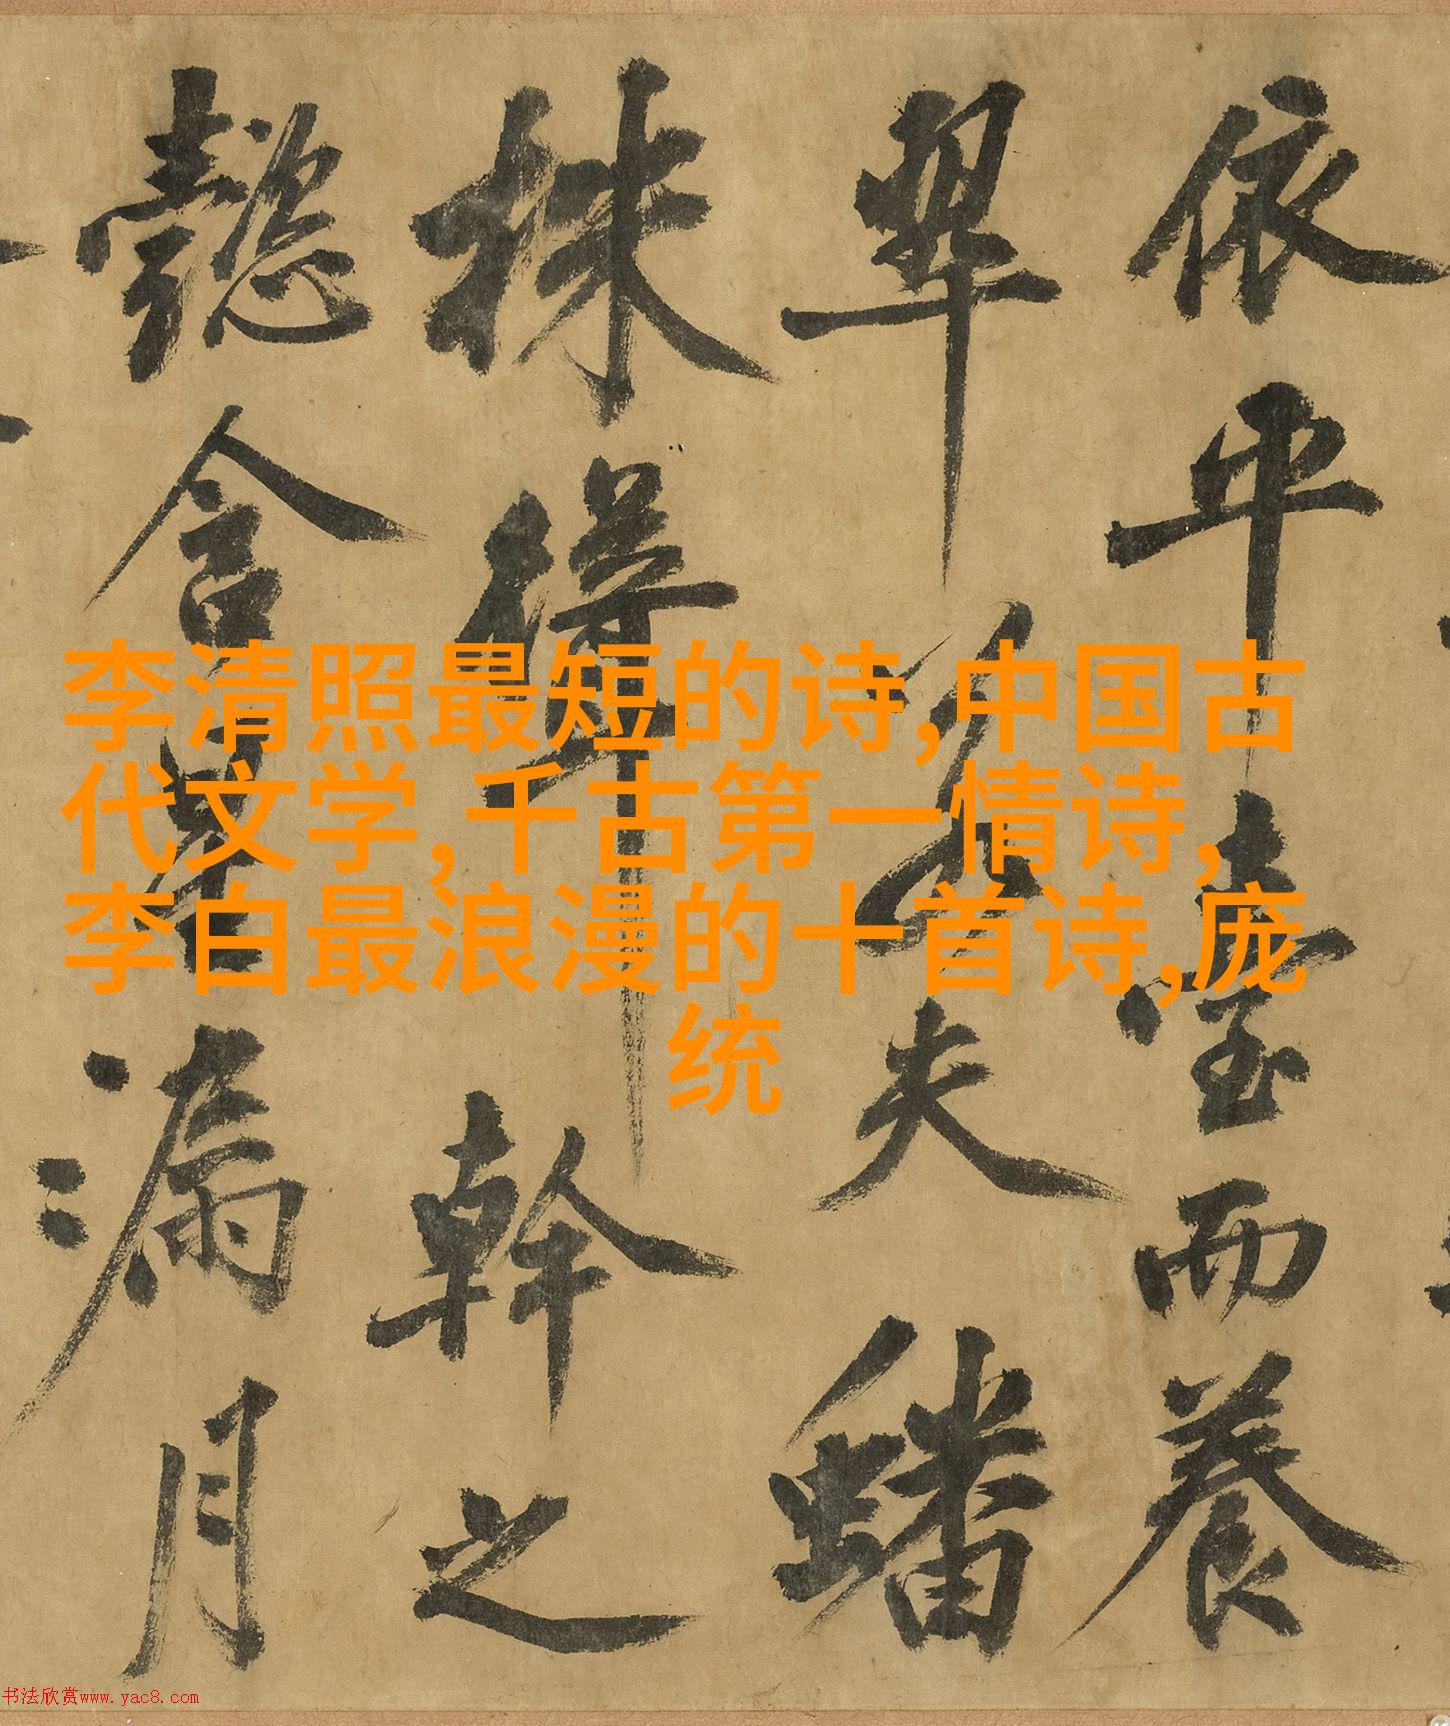 李清照最短的诗,中国古
代文学,千古第一情诗,
李白最浪漫的十首诗,庞
统
依平臺而養
翠夫蟠
株得幹之
懿含星漏月
书法欣赏www.yac8.com